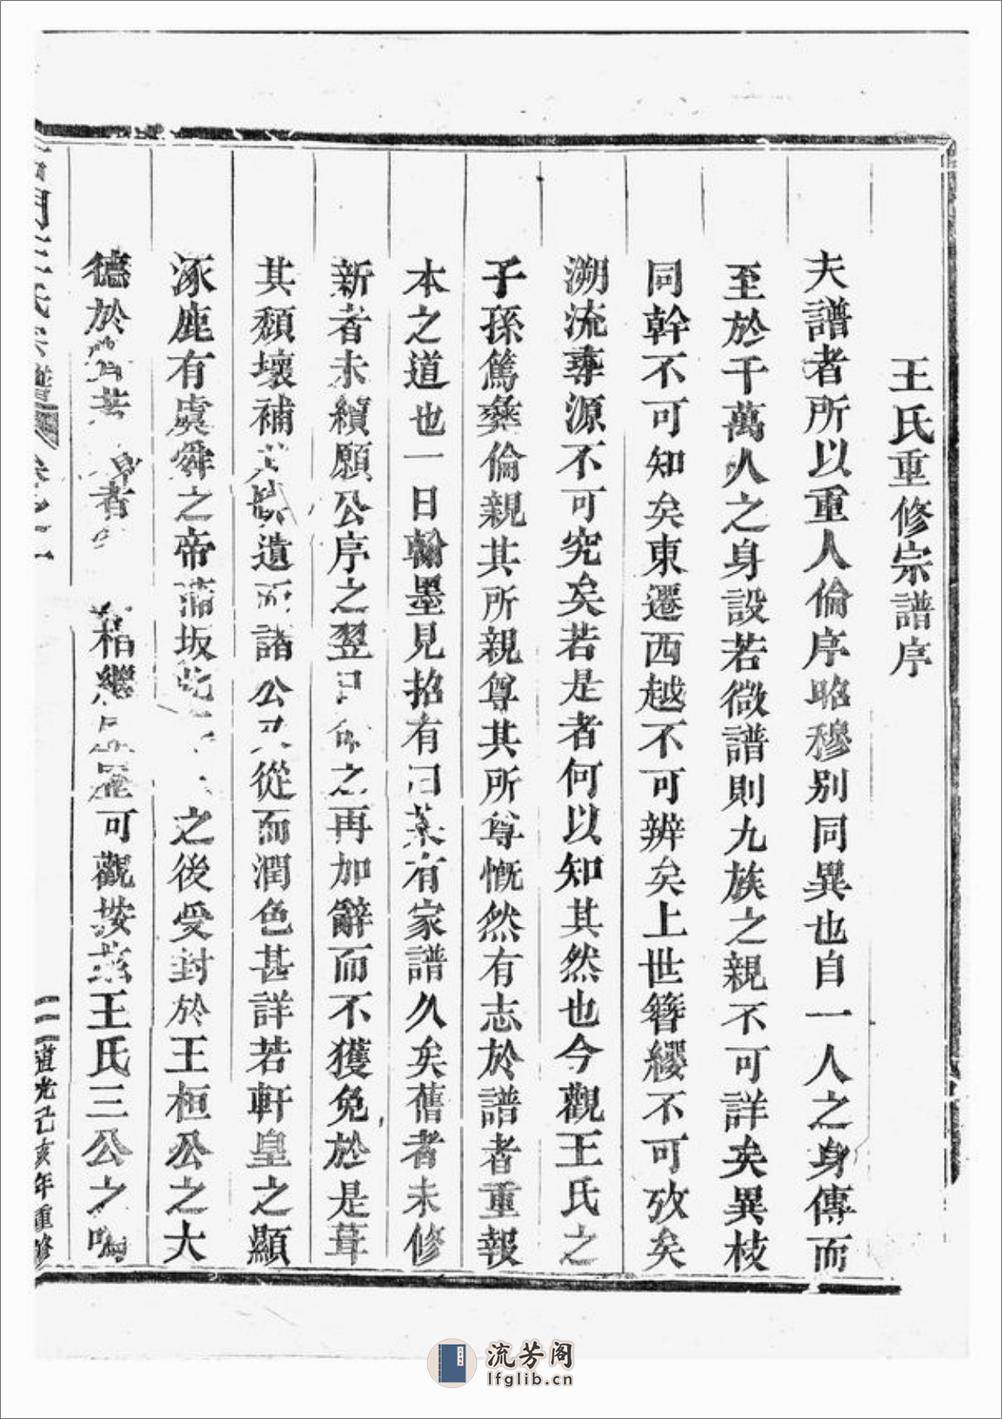 王氏重修宗譜序
夫譜者所以重人倫序昭穆别同異也自一人之身傳而
至於千萬人之身設若微譜則九族之親不可詳矣異枝
同幹不可知矣東遷西越不可辨矣上世簪纓不可攷矣
溯流尋源不可究矣若是者何以知其然也今觀王氏之
子孫篤彝倫親其所親尊其所尊慨然有志於譜者重報
本之道也一日翰墨見招有曰某有家譜久矣舊者未修
新者未續願公序之翌日命之再加辭而不獲免於是葺
其頹壞補其缺遺而諸公又從而潤色甚詳若軒皇之顯
涿鹿有虞舜之帝蒲坂之後受封於王桓公之大
德於者相繼可觀按茲王氏三公之
王氏宗譜 卷之一 道光己亥年重修
流芳阁
lfglib.cn